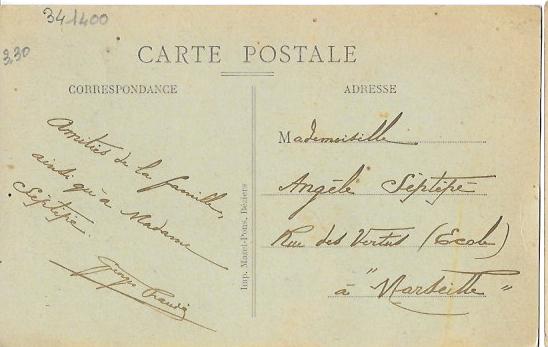 341400
3,30
CARTE POSTALE
CORRESPONDANCE
Amitiés de la famille,
ainsi qu'à Madame
Septépé.
Georges
ADRESSE
Mademoiselle
Angèle Septépé
Rue des Vertus (École)
à "Marseille"
Imp. Mazel-Pons, Béziers